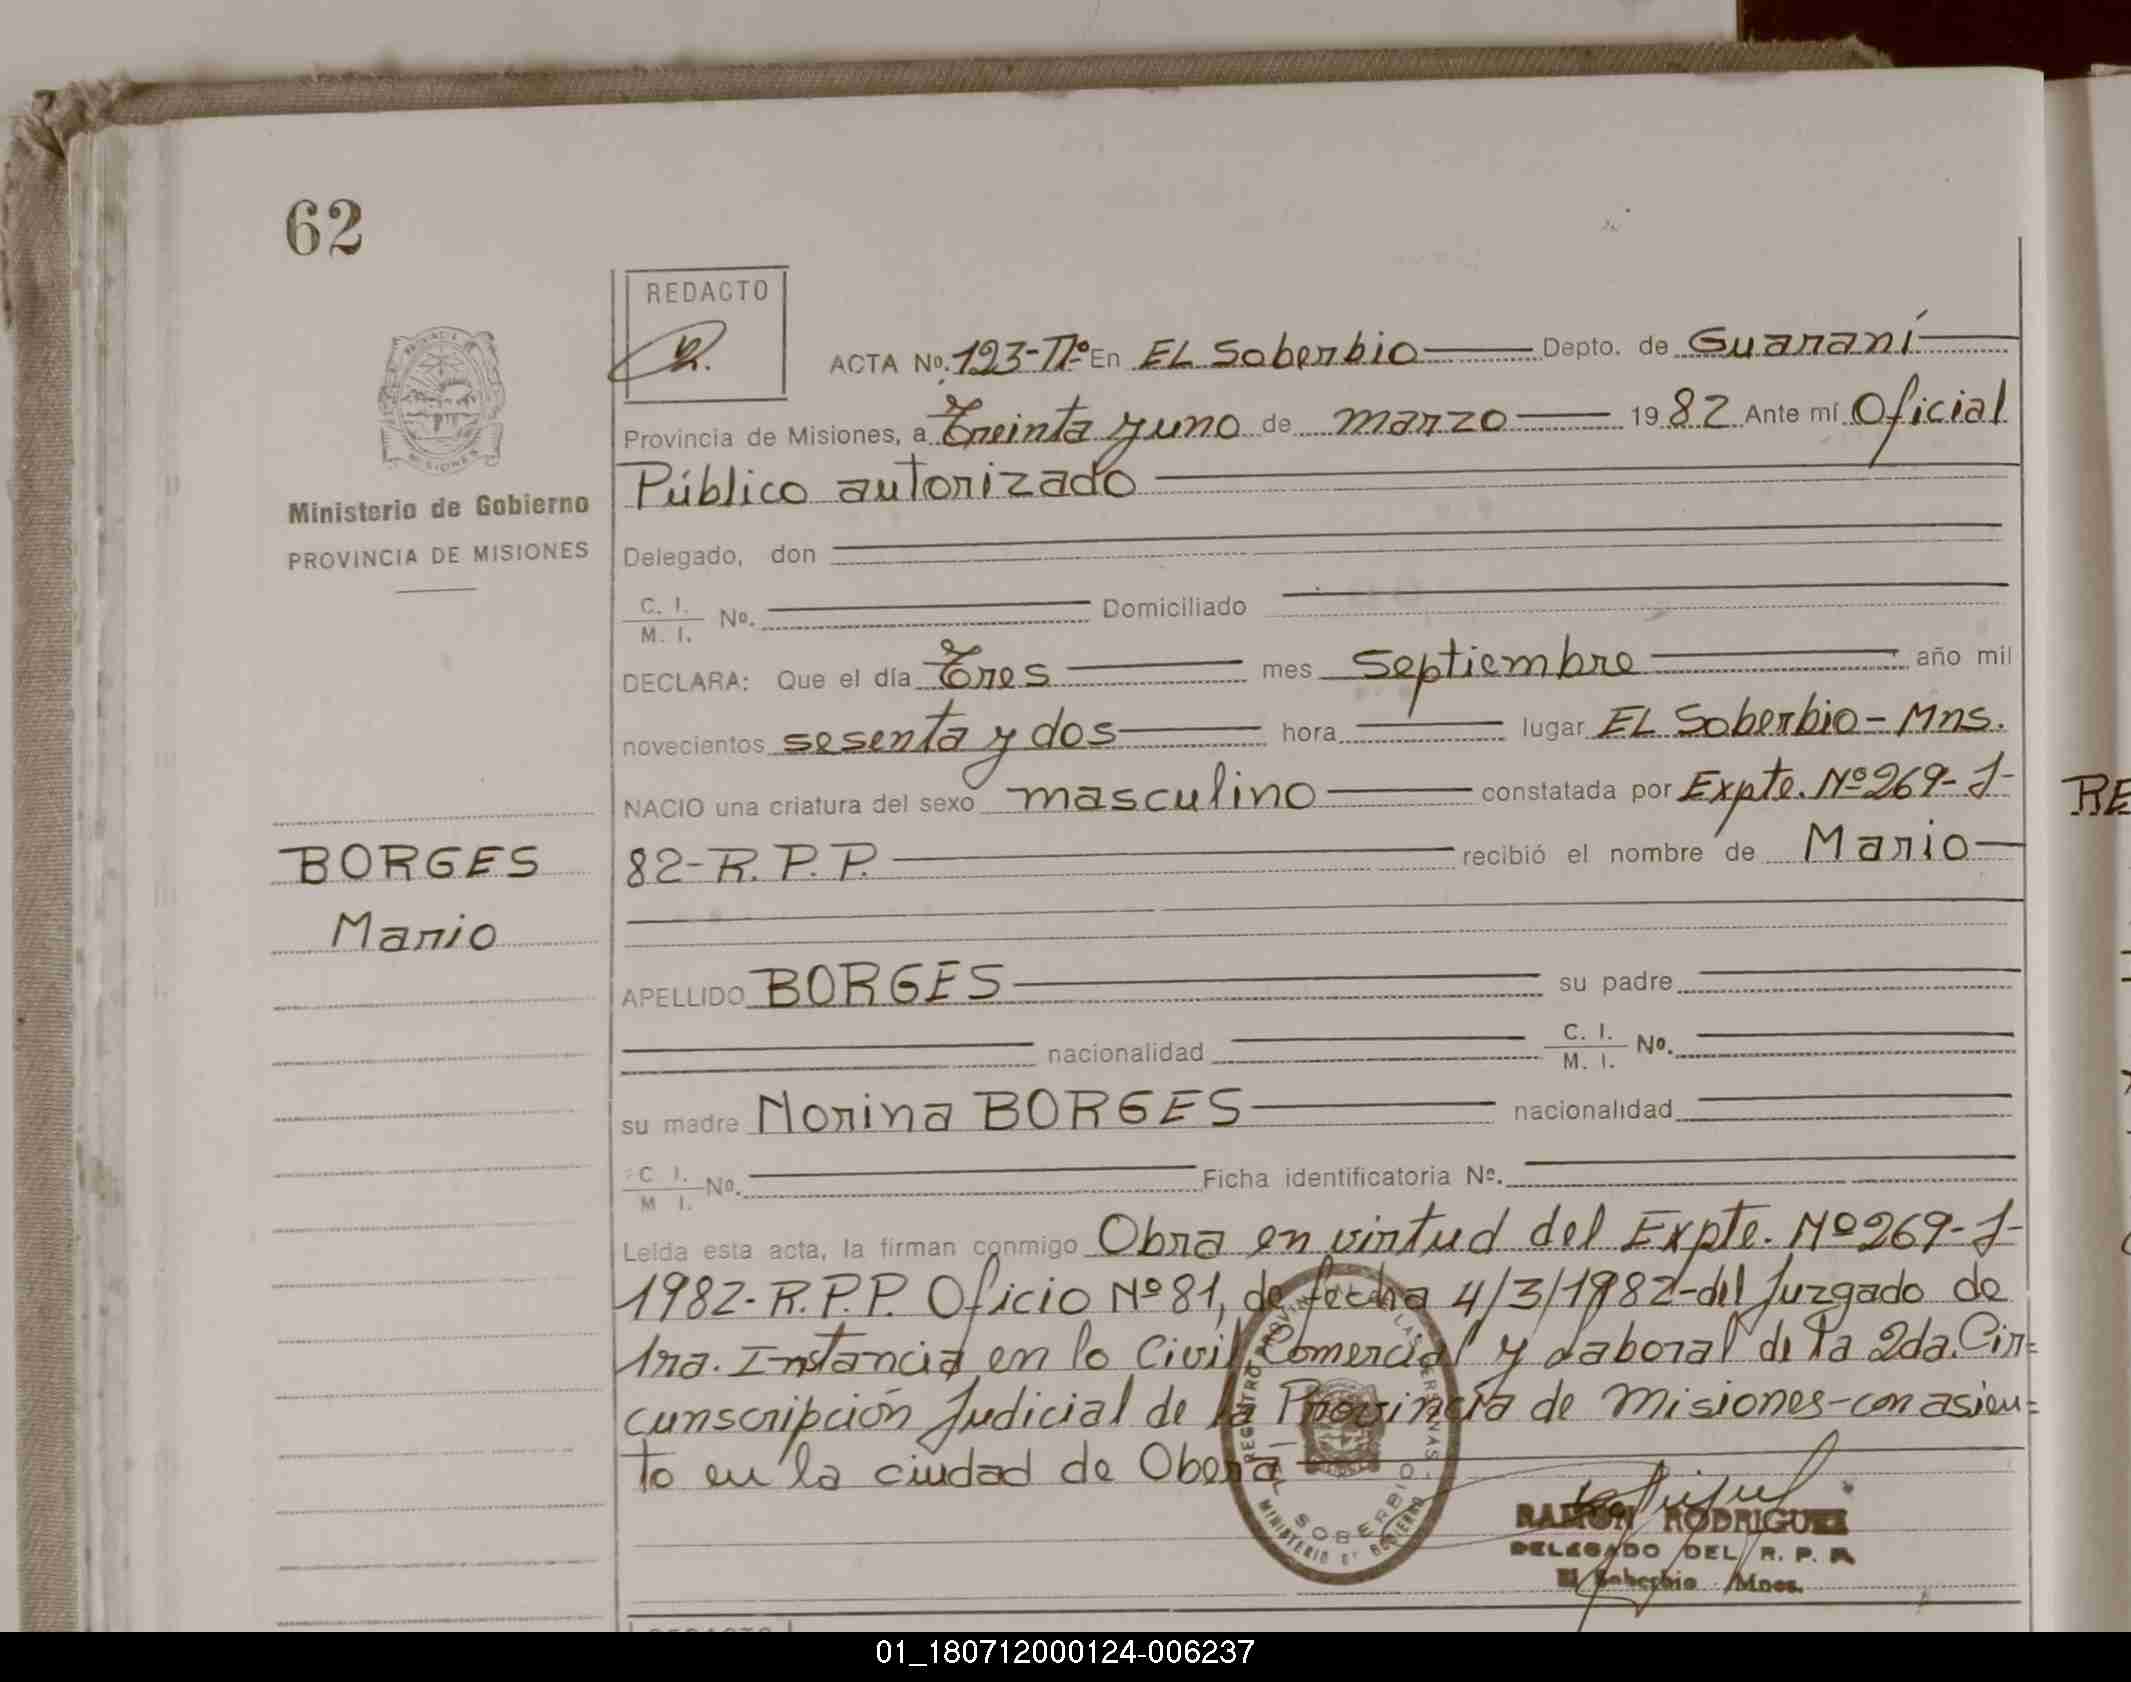 62
REDACTO
ACTA Nº. 123-Tº- En EL Soberbio Depto. de Guaraní
Provincia de Misiones, a Treinta y uno de marzo 1982 Ante mí Oficial
Público autorizado
Ministerio de Gobierno
PROVINCIA DE MISIONES
Delegado, don
C. I.
M. I. Nº. Domiciliado
DECLARA: Que el día Tres mes Septiembre año mil
novecientos sesenta y dos hora lugar EL Soberbio - Mns.
NACIO una criatura del sexo masculino constatada por Expte. Nº 269-J-
82-R.P.P. recibió el nombre de Mario
BORGES
Mario
APELLIDO BORGES su padre
nacionalidad C. I.
M. I. Nº.
su madre Norina BORGES nacionalidad
C. I.
M. I. Nº. Ficha identificatoria Nº.
Leída esta acta, la firman conmigo Obra en virtud del Expte. Nº 269-J-
1982-R.P.P. Oficio Nº 81, de fecha 4/3/1982-del Juzgado de
1ra. Instancia en lo Civil Comercial y Laboral de la 2da. Cir=
cunscripción Judicial de la Provincia de Misiones-con asien=
to en la ciudad de Oberá
SOBERBIO
RAMON RODRIGUEZ
DELEGADO DEL R. P. P.
El Soberbio Mnes.
RE
01_180712000124-006237